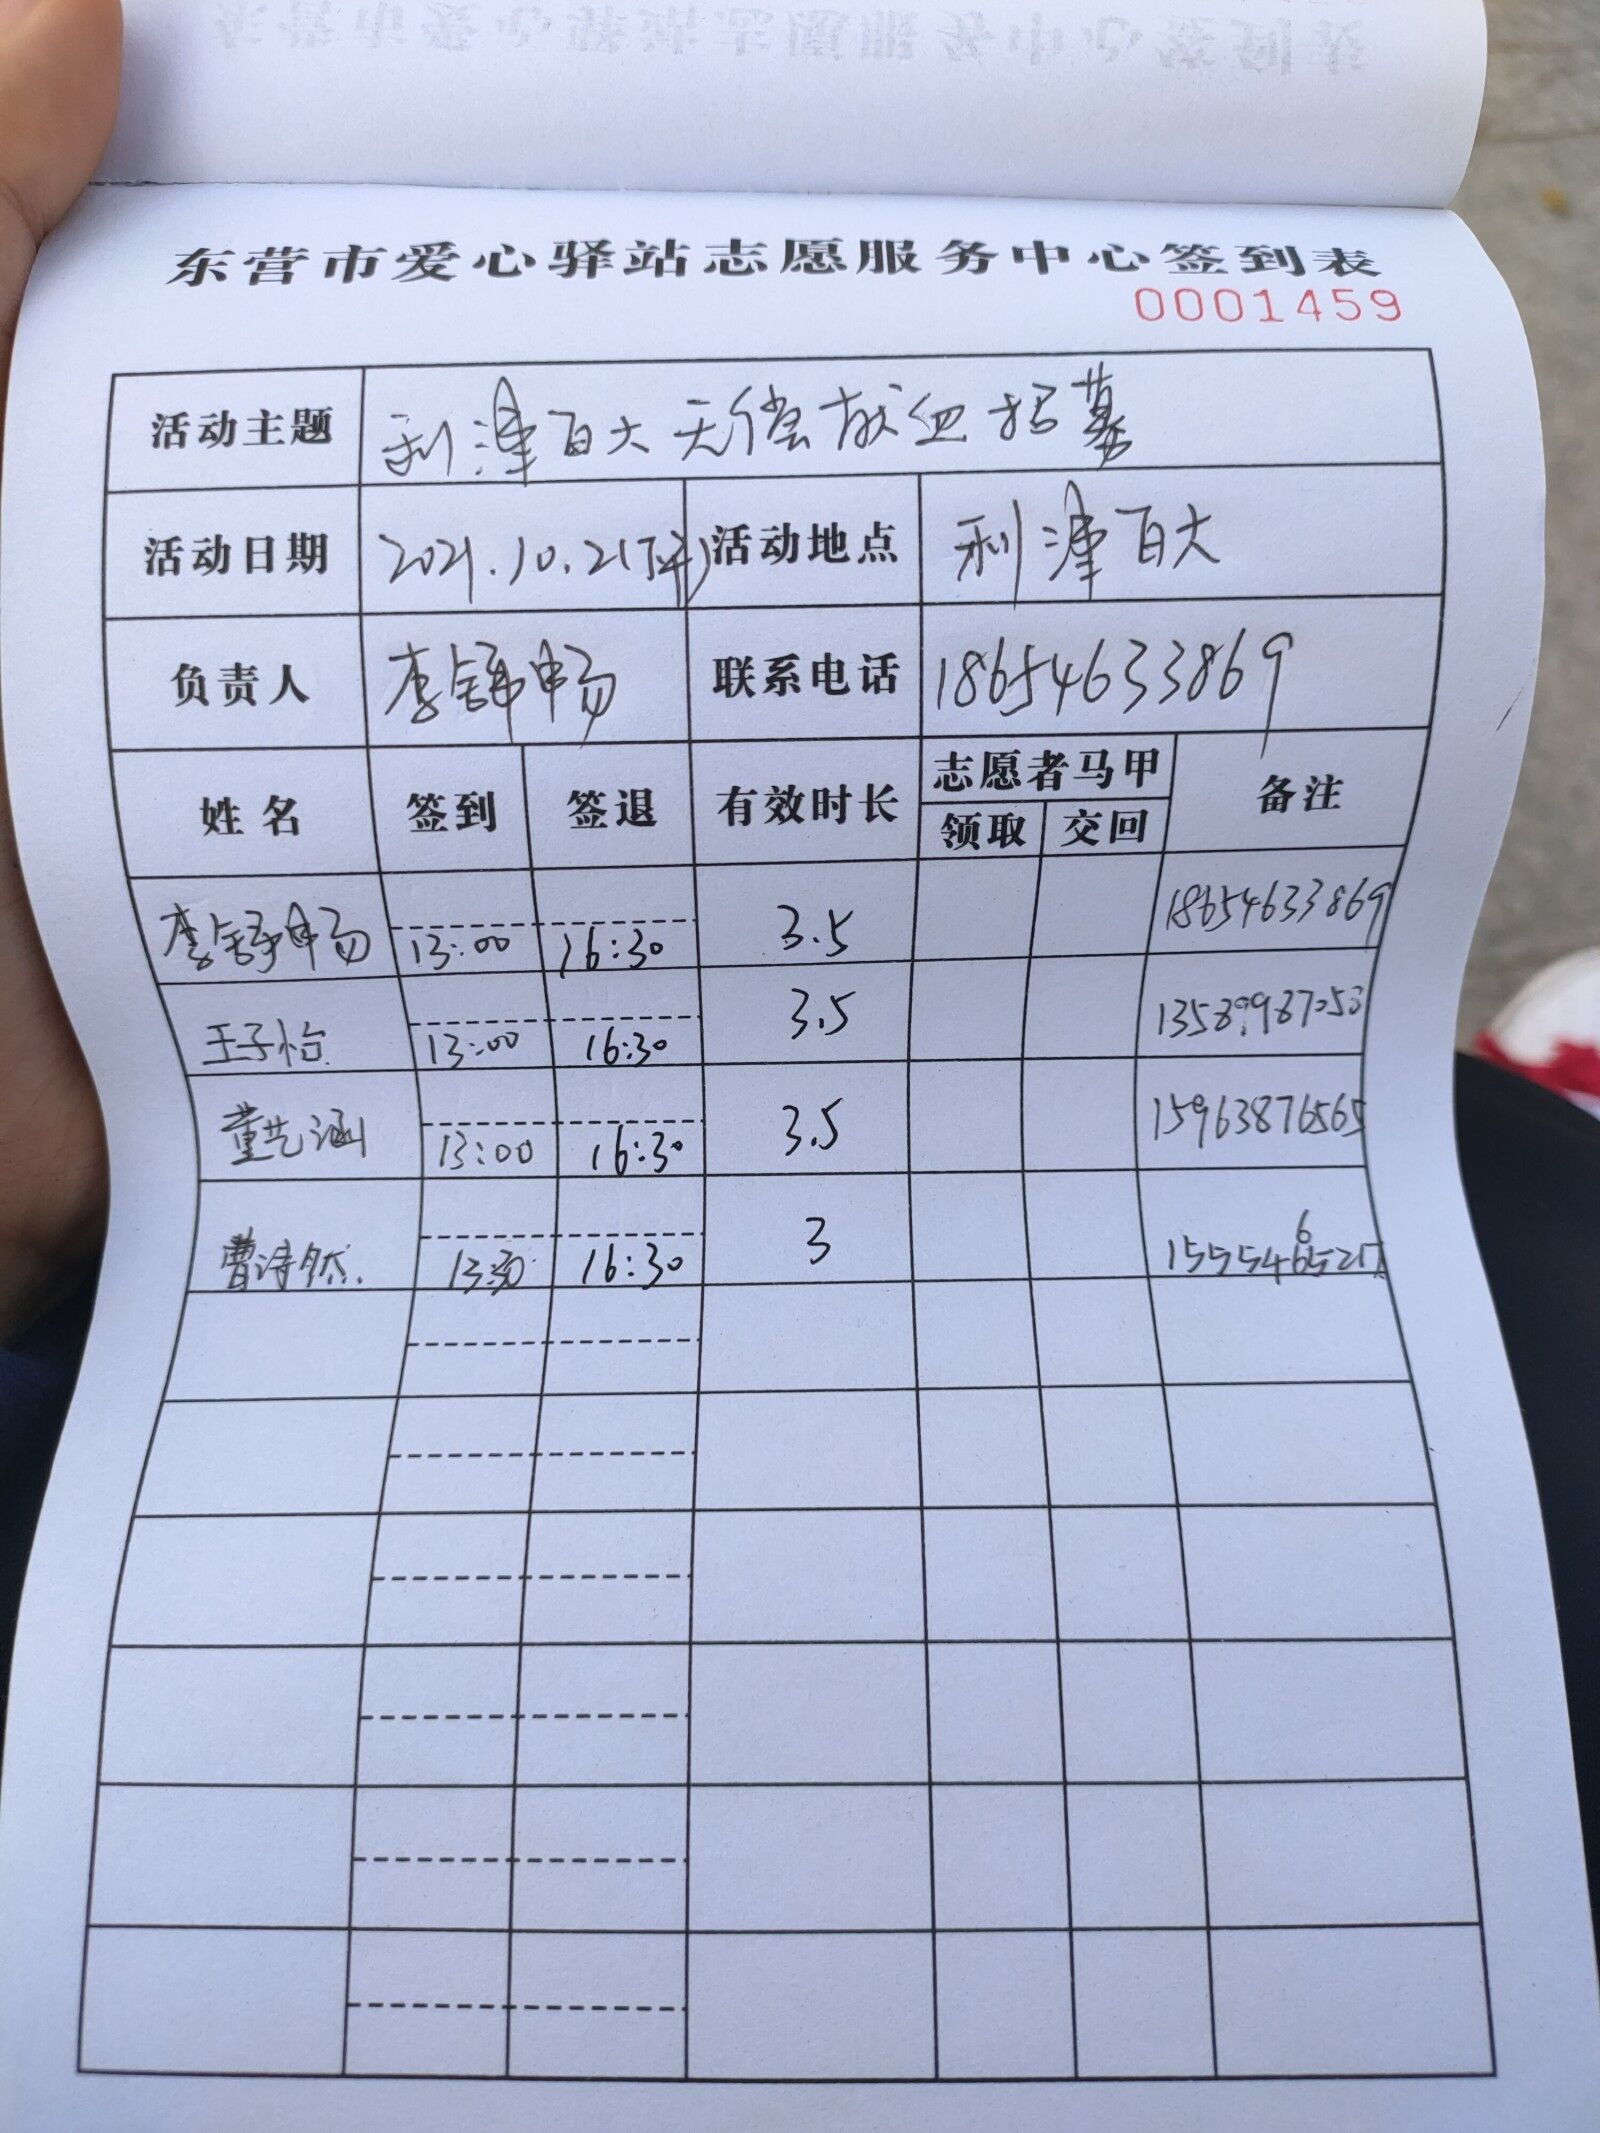 东营市爱心驿站志愿服务中心签到表
0001459
活动主题 利津百大无偿献血招募
活动日期 2021.10.21(下午) 活动地点 利津百大
负责人 李舒畅 联系电话 18654633869
姓名 签到 签退 有效时长 志愿者马甲 备注
领取 交回
李舒畅 13:00 16:30 3.5 18654633869
王子怡 13:00 16:30 3.5
董艺涵 13:00 16:30 3.5 15963876565
曹诗然 13:30 16:30 3